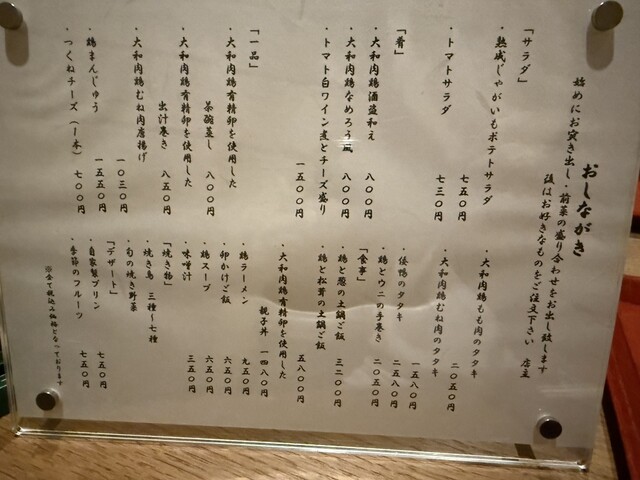 おしながき
始めにお突き出し・前菜の盛り合わせをお出し致します
後はお好きなものをご注文下さい 店主
「サラダ」
・熟成じゃがいもポテトサラダ
七五〇円
・トマトサラダ
七三〇円
「肴」
・大和肉鶏酒盗和え
八〇〇円
・大和肉鶏なめろう風
八〇〇円
・トマト白ワイン煮とチーズ盛り
一五〇〇円
「一品」
・大和肉鶏有精卵を使用した
茶碗蒸し 八〇〇円
・大和肉鶏有精卵を使用した
出汁巻き 八五〇円
・大和肉鶏むね肉唐揚げ
一〇三〇円
・鶏まんじゅう
一五五〇円
・つくねチーズ(一本) 七〇〇円
・大和肉鶏もも肉のタタキ
二〇五〇円
・大和肉鶏むね肉のタタキ
一五八〇円
・倭鴨のタタキ
二五八〇円
・鶏とウニの手巻き
二〇五〇円
「食事」
・鶏と葱の土鍋ご飯
三二〇〇円
・鶏と松茸の土鍋ご飯
五八〇〇円
・大和肉鶏有精卵を使用した
親子丼 一四八〇円
・鶏ラーメン 九五〇円
・卵かけご飯 六五〇円
・鶏スープ 六五〇円
・味噌汁 三五〇円
「焼き物」
・焼き鳥 三種〜七種
・旬の焼き野菜
「デザート」
・自家製プリン 七五〇円
・季節のフルーツ 七五〇円
※全て税込み価格となっております